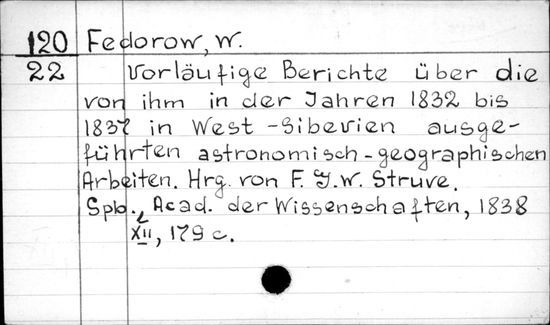 120 Fedorow, W.
22 Vorläufige Berichte über die
von ihm in der Jahren 1832 bis
1837 in West-Siberien ausge-
führten astronomisch-geographischen
Arbeiten. Hrg. von F. G. W. Struve.
Spb., Acad. der Wissenschaften, 1838
XII, 179 c.